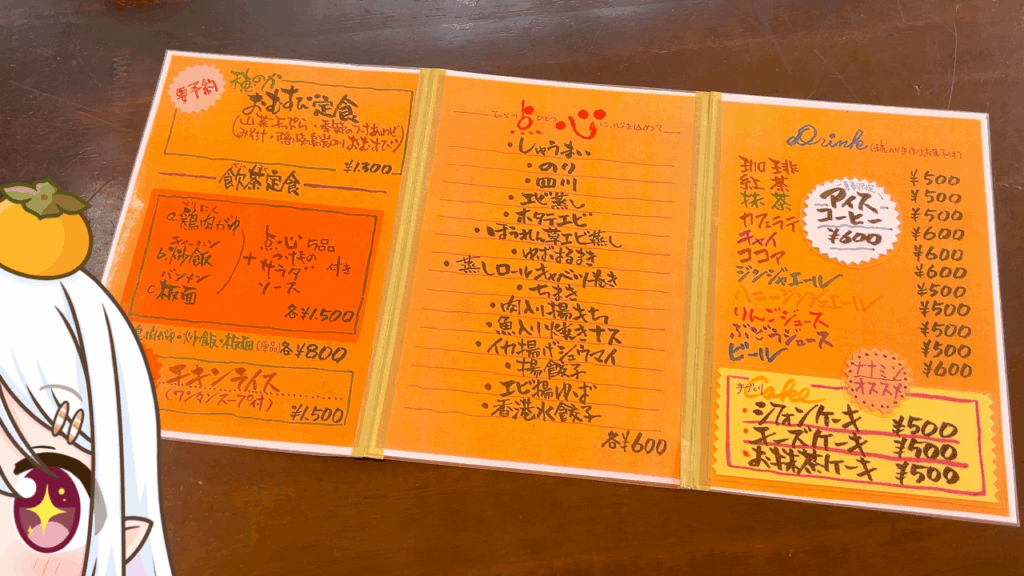 要予約
おむすび定食
¥1,300
飲茶定食
a.鶏肉がゆ
b.炒飯
c.板面
+
点心
サラダ
ソース
付き
各¥1,500
鶏肉がゆ・炒飯・板麺(単品)各¥800
チキンライス
(ワンタンスープ付)
¥1,500
ひとつひとつに、心を込めて
点心
・しゅうまい
・のり
・四川
・エビ蒸し
・ホタテエビ
・ほうれん草エビ蒸し
・ゆばはるまき
・蒸しロールキャベツ巻き
・ちまき
・肉入り揚きもち
・魚入り焼きナス
・イカ揚げシュウマイ
・揚餃子
・エビ揚ゆば
・香港水餃子
各¥600
Drink
珈琲 ¥500
紅茶 ¥500
抹茶 ¥500
カフェラテ ¥600
チャイ ¥600
ココア ¥600
ジンジャエール ¥500
ハニージンジャエール ¥500
りんごジュース ¥500
ぶどうジュース ¥500
ビール ¥600
アイス
コーヒー
¥600
ナナミン
オススメ
手づくり Cake
・シフォンケーキ ¥500
・チーズケーキ ¥500
・お抹茶ケーキ ¥500